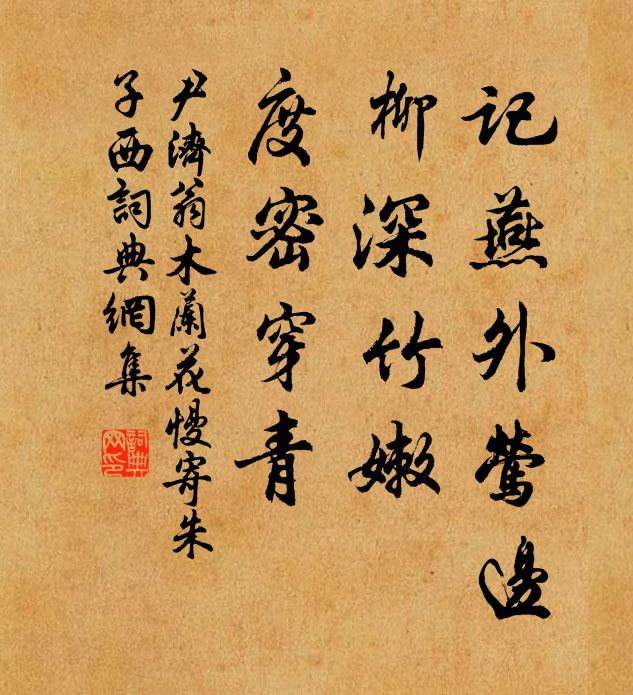 記燕外鶯邊
柳深竹嫩
度密穿青
尹濟翁木蘭花慢寄朱
子西詞典網集
詞典網印